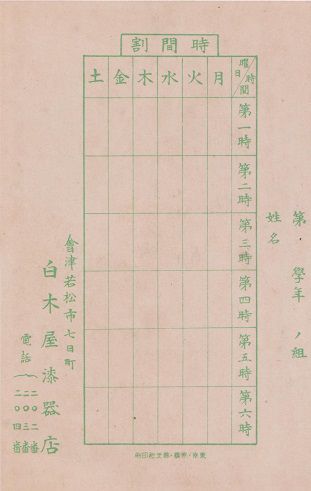 時間割
曜日 時間
月 火 水 木 金 土
第一時
第二時
第三時
第四時
第五時
第六時
第 學年 ノ組
姓名
會津若松市七日町
白木屋漆器店
電話
二〇二番
二〇三番
二〇四番